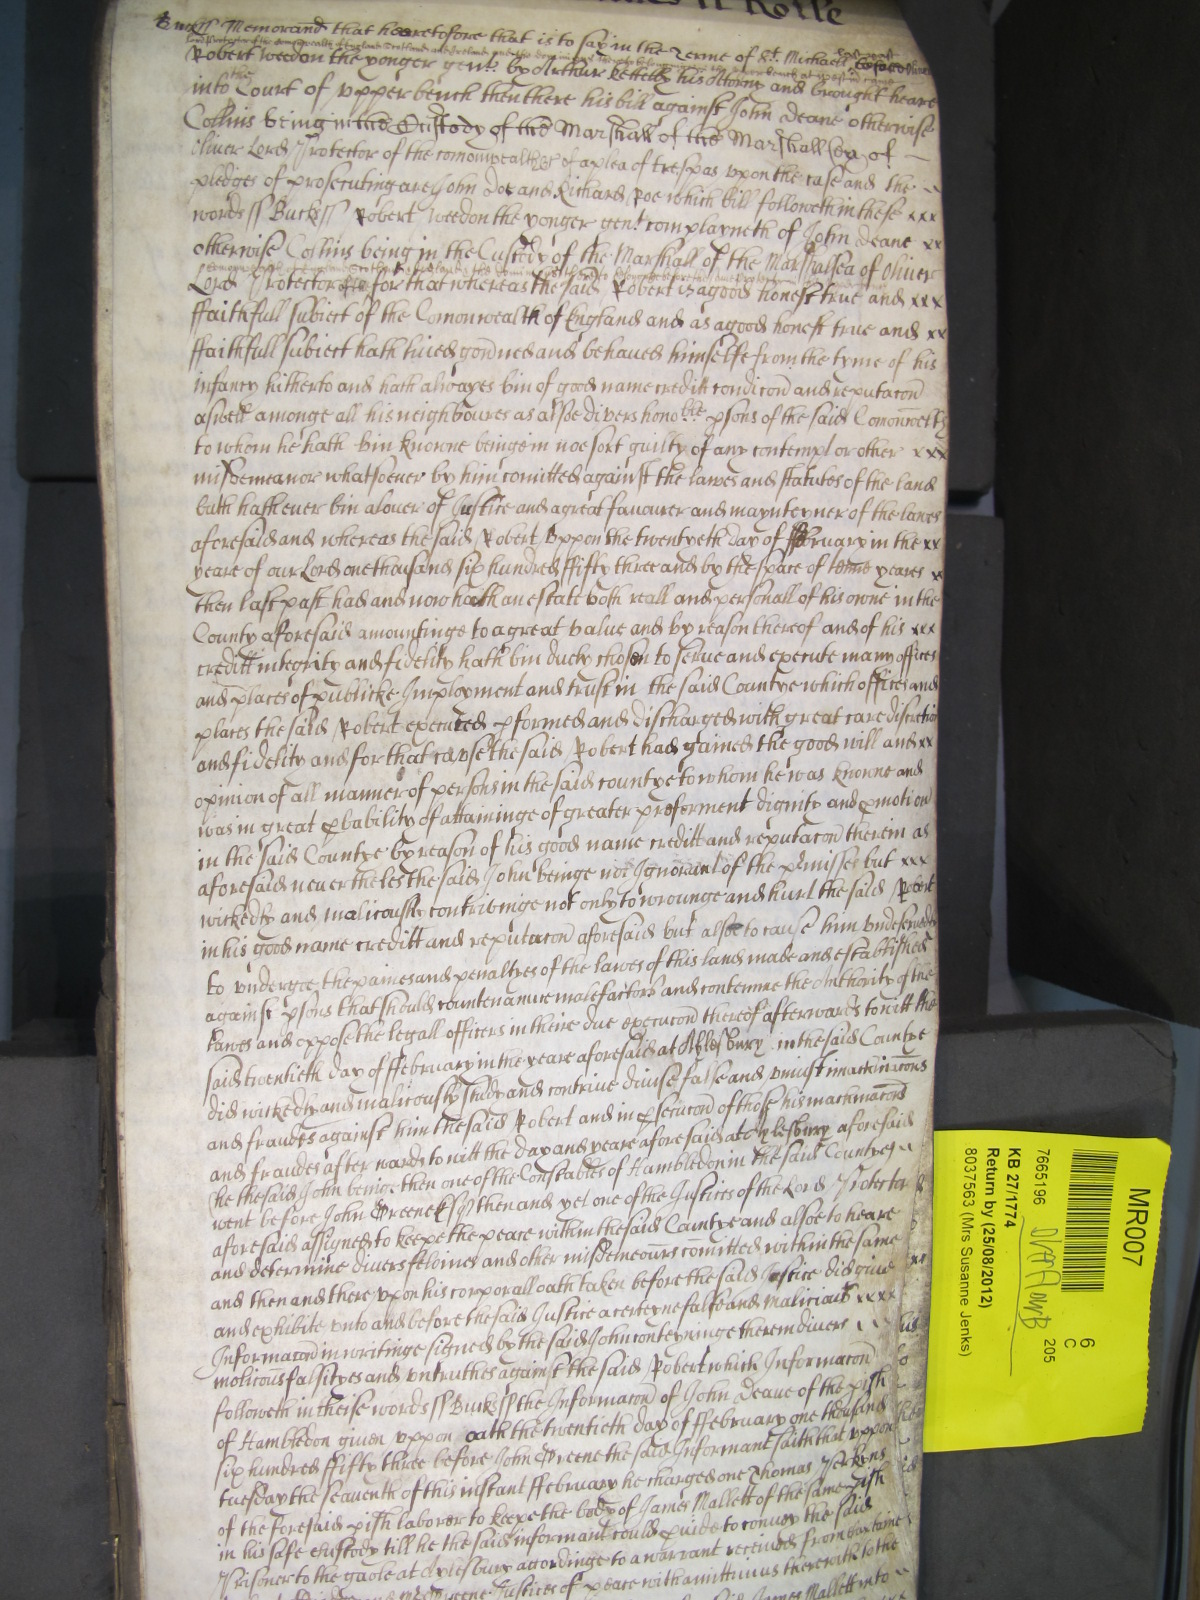 Bucks ss Memorand that heretofore that is to say in the Terme of St. Michaell
Robert Weedon the yonger gent by Arthur Ketteth his Attorny and brought heare
into the Court of vpper bench then there his bill against John Deane otherwise
Collins being in the Custody of the Marshall of the Marshallsey of
Oliver Lord Protector of the comonwealth &c of a plea of trespas vpon the case and the
pledges of prosecuting are John Doe and Richard Roe which bill followeth in these xxx
words ss Bucks ss Robert Weedon the yonger gent complayneth of John Deane xx
otherwise Collins being in the Custody of the Marshall of the Marshalsea of Oliver
Lord Protector for that whereas the said Robert is a good honest true and xxx
ffaithfull subiect of the Comonwealth of England and as a good honest true and xx
ffaithfull subiect hath lived gouned and behaved himselfe from the tyme of his
infancy hitherto and hath alwayes bin of good name creditt condicon and reputacon
aswell amonge all his neighboures as alsoe divers honoble psons of the said Comonwelth
to whom he hath bin knowne beinge in noe sort guilty of any contempt or other xxx
misdemeanor whatsoever by him comitted against the lawes and statutes of the land
buth hath ever bin a lover of Justice and a great favourer and maynteyner of the lawes
aforesaid and whereas the said Robert vppon the twentyeth day of ffebruary in the xx
yeare of our Lord one thousand six hundred ffifty three and by the space of tenne yeares x
then last past had and now hath an estate both reall and personall of his owne in the
County aforesaid amountinge to a great value and by reason thereof and of his xxx
creditt integrity and fidelity hath bin duely chosen to serve and execute many offices
and places of publicke Imployment and trust in the said Countye which offices and
places the said Robert executed pformed and discharged with great care discretion
and fidelity and for that cause the said Robert had gained the good will and xx
opinion of all manner of persons in the said countye to whom he was knowne and
was in great pbability of attaininge of greater preferment dignity and pmotion
in the said Countye by reason of his good name creditt and reputacon therein as
aforesaid neverthelesse the said John beinge not Ignorant of the pmisses but xxx
wickedly and maliciously contrivinge not only to wrounge and hurt the said Robert
in his good name creditt and reputacon aforesaid but alsoe to cause him vndeservedly
to vndergoe the paines and penaltyes of the lawes of this land made and established
against psons that should countenance malefactors and contemne the Authority of the
lawes and oppose the legall officers in theire due execucon thereof afterwards to witt the
said twentieth day of ffebruary in the yeare aforesaid at Aylesbury in the said Countye
did wickedly and maliciously study and contrive divise false and vniust machinacons
and fraudes against him the said Robert and in psecucon of those his machinacons
and fraudes afterwards to witt the day and yeare aforesaid at Aylesbury aforesaid
he the said John beinge then one of the Constables of Hambledon in the said Countye
went before John Greene Esq then and yet one of the Justices of the Lord Protector
aforesaid assigned to keepe the peace within the said Countye and alsoe to heare
and determine divers felonies and other misdemeanors comitted within the same
and then and there vpon his corporall oath taken before the said Justice did give
and exhibite vnto and before the said Justice a certeyne false and malicious xxxx
Informacon in writinge signed by the said John conteyninge therein divers
malicious falsityes and vntruthes against the said Robert which Informacon
followeth in theise words ss Bucks ss the Informacon of John Deane of the pish
of Hambledon given vppon oath the twentieth day of ffebruary one thousand
six hundred ffifty three before John Greene the said Informant saith that vppon
tuesday the seaventh of this instant ffebruary he charged one Thomas Perkens
of the foresaid pish laborer to keepe the body of James Mallett of the same pish
in his safe custody till he the said informant could pvide to convey the said
Prisoner to the gaole at Aylesbury accordinge to a warrant received from
Justices of peace with a mittimus therewith to the
said James Mallett into
MR007
6
C
205
7665196
KB 27/1774
Return by (25/08/2012)
8037563 (Mrs Susanne Jenks)